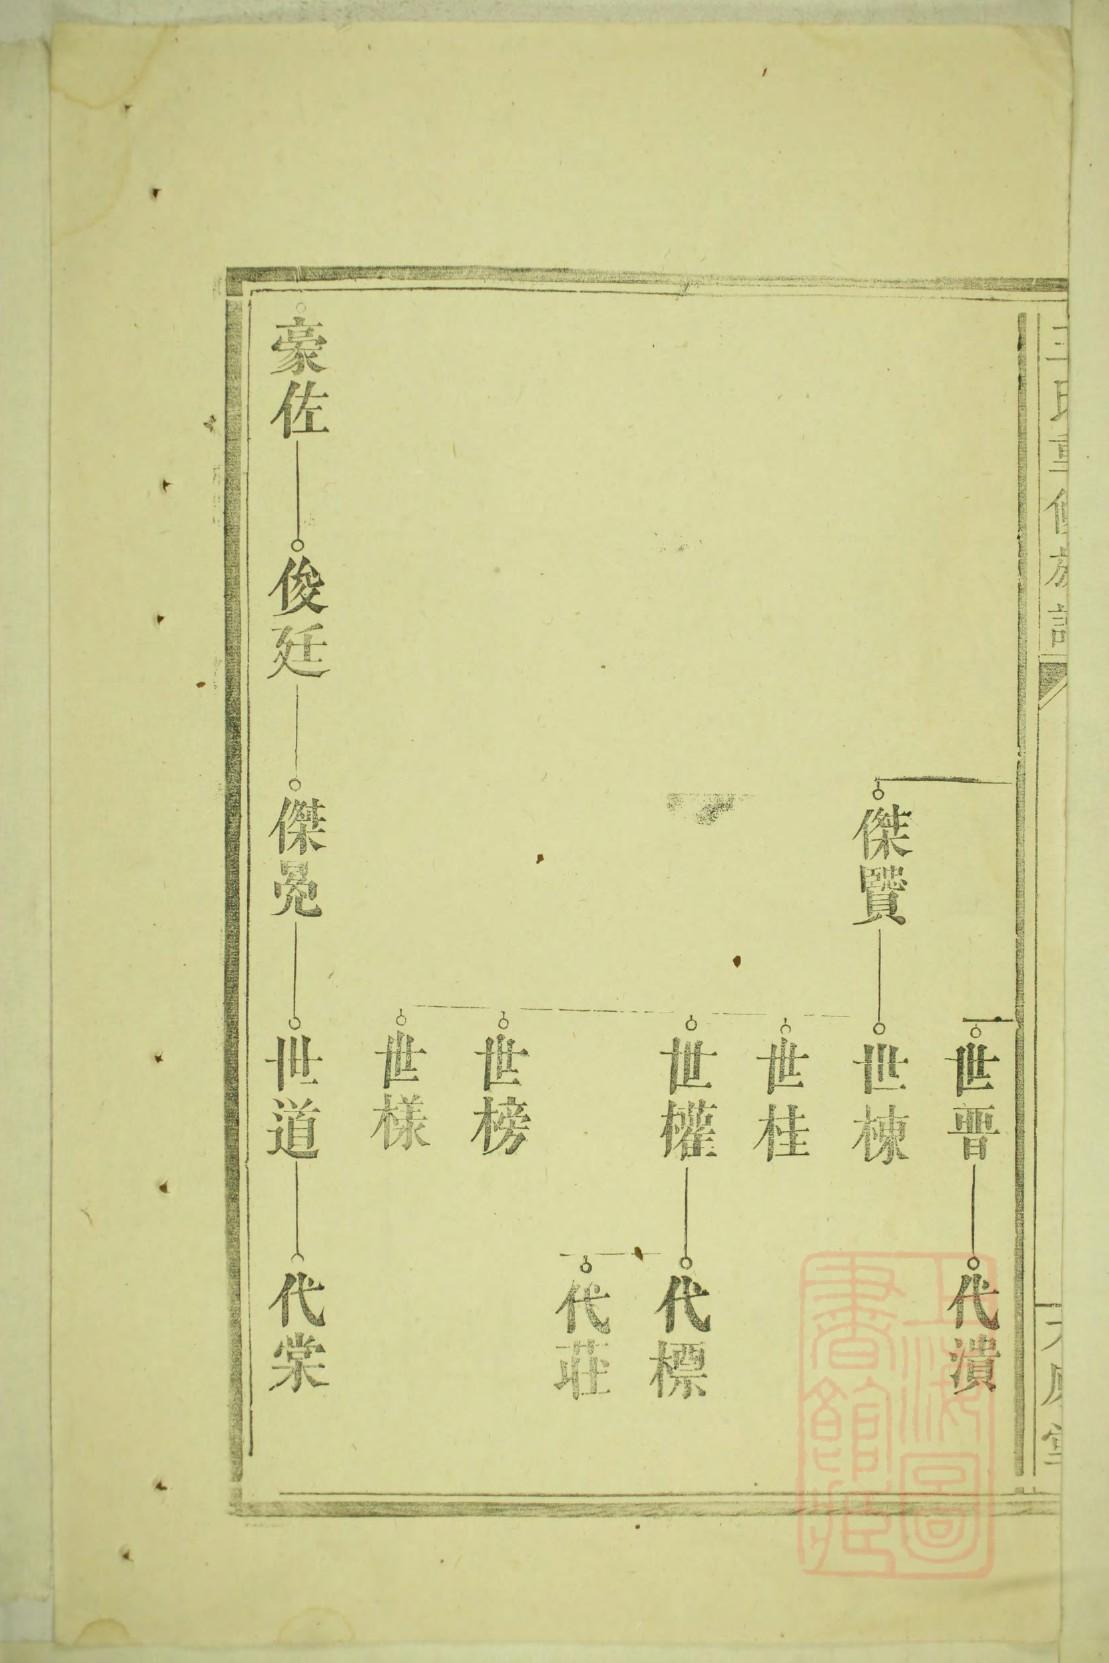 王氏重修族譜
世晋
代潰
傑賢
世棟
世桂
世權
代標
代莊
世榜
世樣
豪佐
俊廷
傑冕
世道
代棠
上海圖書館藏